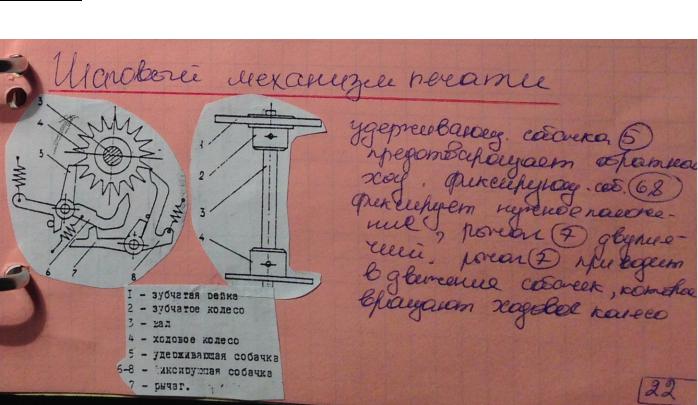 Шаговый механизм печати
3
4
5
6
7
8
1
2
3
4
удерживающ. собачка 5
предотвращает обратный
ход. фиксирующ. соб. 68
фиксирует нужное положе-
ние, рычаг 7 двупле-
чий. рычаг 7 приводит
в движение собачек, которые
вращают ходовое колесо
1 - зубчатая рейка
2 - зубчатое колесо
3 - вал
4 - ходовое колесо
5 - удерживающая собачка
6-8 - фиксирующая собачка
7 - рычаг.
22